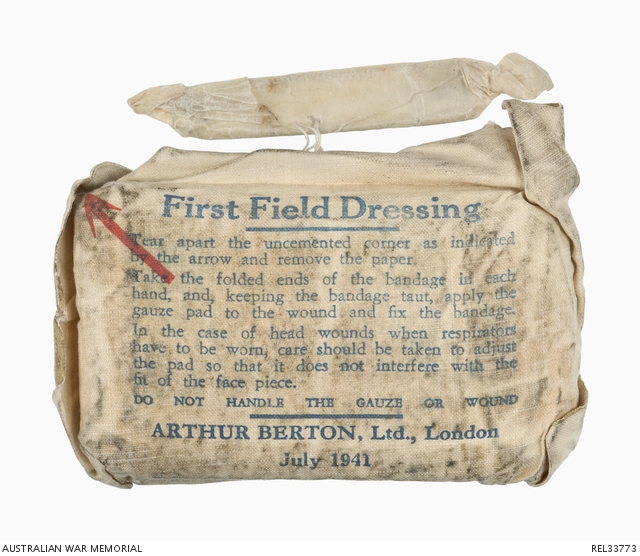 First Field Dressing
Tear apart the uncemented corner as indicated
by the arrow and remove the paper.
Take the folded ends of the bandage in each
hand, and, keeping the bandage taut, apply the
gauze pad to the wound and fix the bandage.
In the case of head wounds when respirators
have to be worn, care should be taken to adjust
the pad so that it does not interfere with the
fit of the face piece.
DO NOT HANDLE THE GAUZE OR WOUND
ARTHUR BERTON, Ltd., London
July 1941
AUSTRALIAN WAR MEMORIAL
REL33773